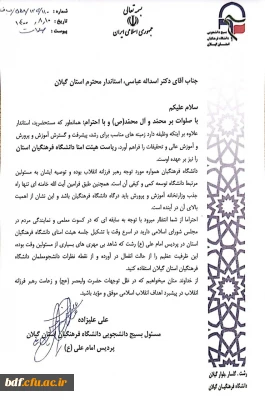 بسمه تعالی
جمهوری اسلامی ایران
شماره :
تاریخ :
پیوست :
بسیج دانشجویی
دانشگاه فرهنگیان
استان گیلان
جناب آقای دکتر اسداله عباسی، استاندار محترم استان گیلان
سلام علیکم
با صلوات بر محمد و آل محمد(ص) و با احترام؛ همانطور که مستحضرید، استاندار
علاوه بر اینکه وظیفه دارد زمینه های مناسب برای رشد، پیشرفت و گسترش آموزش و پرورش
و آموزش عالی و تحقیقات را فراهم آورد، ریاست هیئت امنا دانشگاه فرهنگیان استان
را نیز بر عهده اوست.
دانشگاه فرهنگیان همواره مورد توجه رهبر فرزانه انقلاب بوده و توصیه ایشان به مسئولین
مرتبط دانشگاه توسعه کمی و کیفی آن است. همچنین طبق فرامین آیت الله خامنه ای تنها راه
جذب وزارتخانه آموزش و پرورش باید درگاه دانشگاه فرهنگیان باشد و این نشان از اهمیت
بالای آن در آینده است.
احتراما از شما انتظار میرود با توجه به سابقه ای که در کسوت معلمی و نمایندگی مردم در
مجلس شورای اسلامی دارید در اسرع وقت با تشکیل جلسه هیئت امنای دانشگاه فرهنگیان
استان در پردیس امام علی (ع) رشت که شاهد بی مهری های بسیاری از مسئولین وقت بوده
این ظرفیت عظیم را از حالت انفعال در آورده و از نقطه نظرات دانشجومعلمان دانشگاه
فرهنگیان استان گیلان استفاده کنید.
از خداوند منان میخواهیم که در ظل توجهات حضرت ولیعصر (عج) و زعامت رهبر فرزانه
انقلاب در پیشبرد اهداف انقلاب اسلامی موفق و مؤید باشید.
علی علیزاده
مسئول بسیج دانشجویی دانشگاه فرهنگیان استان گیلان
پردیس امام علی (ع)
رشت، گلسار بلوار گیلان
دانشگاه فرهنگیان گیلان
bdf.cfu.ac.ir